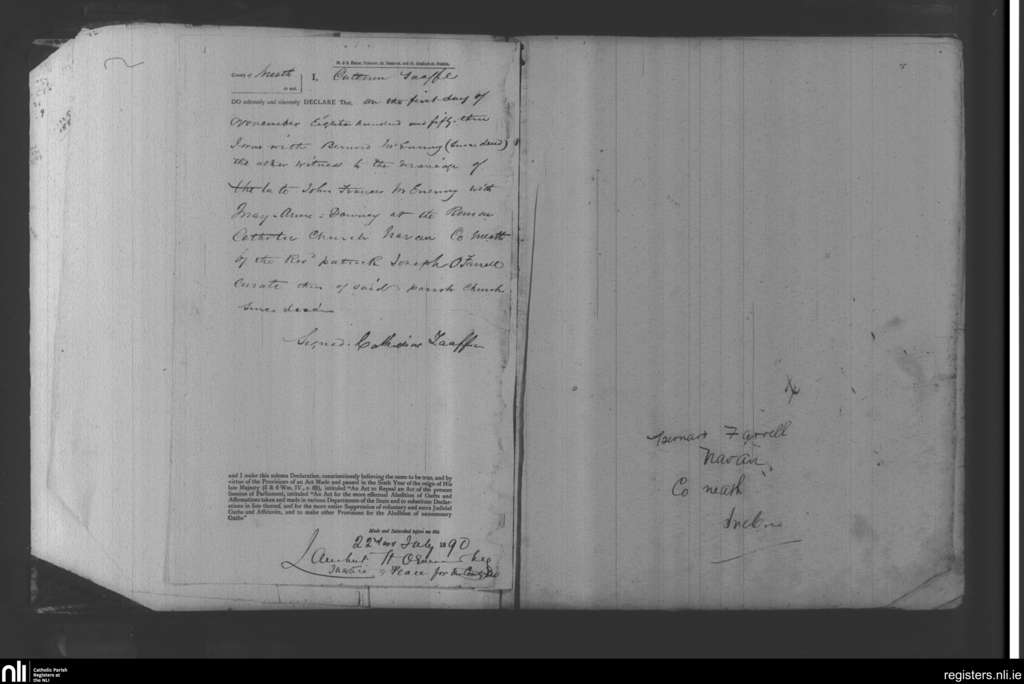 County of Meath
to wit.
I, Catherine Taaffe
DO solemnly and sincerely DECLARE That, on the first day of
November Eighteen hundred and fifty-three
I was with Bernard McEnerny (since dead)
the other witness to the marriage of
the late John Francis McEnerny with
Mary-Anne-Downey at the Roman
Catholic Church Navan Co Meath
by the Revd patrick Joseph O'Farrell
Curate then of said parish Church
since dead
Signed. Catherine Taaffe
and I make this solemn Declaration, conscientiously believing the same to be true, and by
virtue of the Provisions of an Act Made and passed in the Sixth Year of the reign of His
late Majesty (5 & 6 Wm. IV., c. 62), intituled "An Act to Repeal an Act of the present
Session of Parliament, intituled "An Act for the more effectual Abolition of Oaths and
Affirmations taken and made in various Departments of the State and to substitute Declar-
ations in lieu thereof, and for the more entire Suppression of voluntary and extra Judicial
Oaths and Affidavits, and to make other Provisions for the Abolition of unnecessary
Oaths"
Made and Subscribed before me this
22nd day July 1890
Justice of Peace for the County
Bernard Farrell
Navan
Co Meath
nli
Catholic Parish
Registers at
the NLI
registers.nli.ie